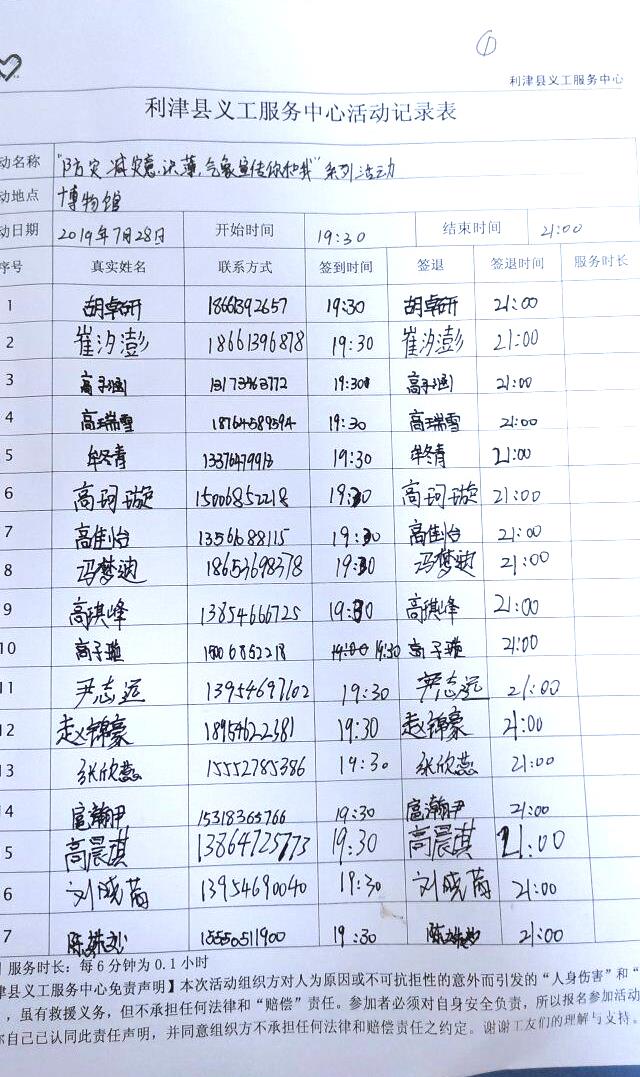 ①
利津县义工服务中心
利津县义工服务中心活动记录表
动名称 "防灾减灾意识薄,气象宣传你和我"系列活动
动地点 博物馆
动日期 2019年7月28日 开始时间 19:30 结束时间 21:00
序号 真实姓名 联系方式 签到时间 签退 签退时间 服务时长
1 胡卓研 18661392657 19:30 胡卓研 21:00
2 崔汐澎 18661396878 19:30 崔汐澎 21:00
3 高子涵 13173463772 19:30 高子涵 21:00
4 高瑞雪 18764589594 19:30 高瑞雪 21:00
5 牟冬青 13376479913 19:30 牟冬青 21:00
6 高珂璇 15006852218 19:30 高珂璇 21:00
7 高佳怡 1356688115 19:30 高佳怡 21:00
8 冯梦迪 18653698378 19:30 冯梦迪 21:00
9 高琪峰 13854666725 19:30 高琪峰 21:00
10 高子璇 15006852218 19:30 高子璇 21:00
11 尹志远 13954697102 19:30 尹志远 21:00
12 赵锦豪 18954622381 19:30 赵锦豪 21:00
13 张欣蕊 15552785386 19:30 张欣蕊 21:00
14 扈瀚尹 15318365766 19:30 扈瀚尹 21:00
5 高晨琪 13864725773 19:30 高晨琪 21:00
6 刘晓菡 13954690040 19:30 刘晓菡 21:00
7 陈 15550511900 19:30 陈 21:00
服务时长:每6分钟为0.1小时
津县义工服务中心免责声明】本次活动组织方对人为原因或不可抗拒性的意外而引发的"人身伤害"和"
,虽有救援义务,但不承担任何法律和"赔偿"责任。参加者必须对自身安全负责,所以报名参加活动
你自己已认同此责任声明,并同意组织方不承担任何法律和赔偿责任之约定。谢谢工友们的理解与支持。